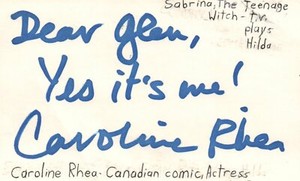 Sabrina, The Teenage
Witch - t.v.
plays
Hilda
Dear Glen,
Yes it's me!
Caroline Rhea
Caroline Rhea - Canadian comic, Actress